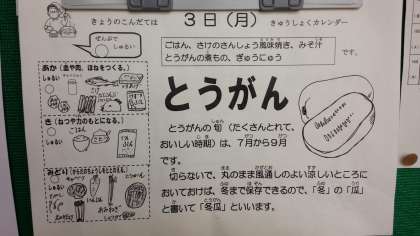 きょうのこんだては
3日(月)
きゅうしょくカレンダー
ぜんぶで
しゅるい
ごはん、さけのさんしょう風味焼き、みそ汁
とうがんの煮もの、ぎゅうにゅう
です。
あか(血や肉、ほねをつくる。)
しゅるい
き(ねつや力のもとになる。)
しゅるい
ごはん
しゅるい
とうがん
とうがんの旬(たくさんとれて、
おいしい時期)は、7月から9月
です。
切らないで、丸のまま風通しのよい涼しいところに
おいておけば、冬まで保存できるので、「冬」の「瓜」
と書いて「冬瓜」といいます。